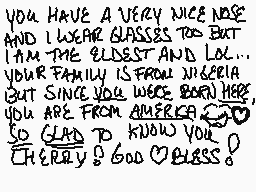 YOU HAVE A VERY NICE NOSE
AND I WEAR GLASSES TOO BUT
I AM THE ELDEST AND LOL...
YOUR FAMILY IS FROM NIGERIA
BUT SINCE YOU WERE BORN HERE,
YOU ARE FROM AMERICA
SO GLAD TO KNOW YOU
CHERRY! GOD ♡ BLESS!